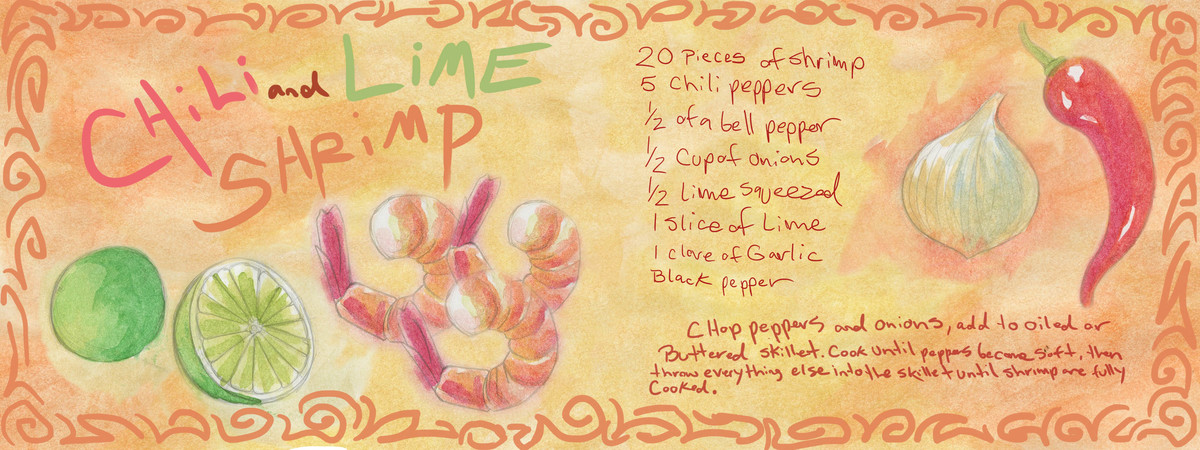 CHiLi and LiME
SHRiMP
20 Pieces of shrimp
5 Chili peppers
1/2 of a bell pepper
1/2 Cup of onions
1/2 Lime squeezed
1 slice of Lime
1 clove of Garlic
Black pepper
CHop peppers and onions, add to oiled or
Buttered skillet. Cook until peppes become soft, then
throw everything else into the skillet until shrimp are fully
Cooked.